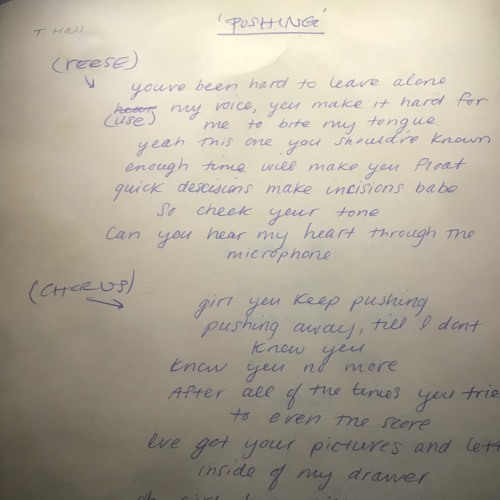 'PUSHING'
T Hall
(reese)
youve been hard to leave alone
hear my voice, you make it hard for
(use)
me to bite my tongue.
yeah this one you shouldve known
enough time will make you float
quick descisions make incisions babe
So check your tone
Can you hear my heart through the
microphone
(CHORUS)
girl you keep pushing
pushing away, till I dont
know you
know you no more
After all of the times you trie
to even the score
Ive got your pictures and lett
inside of my drawer